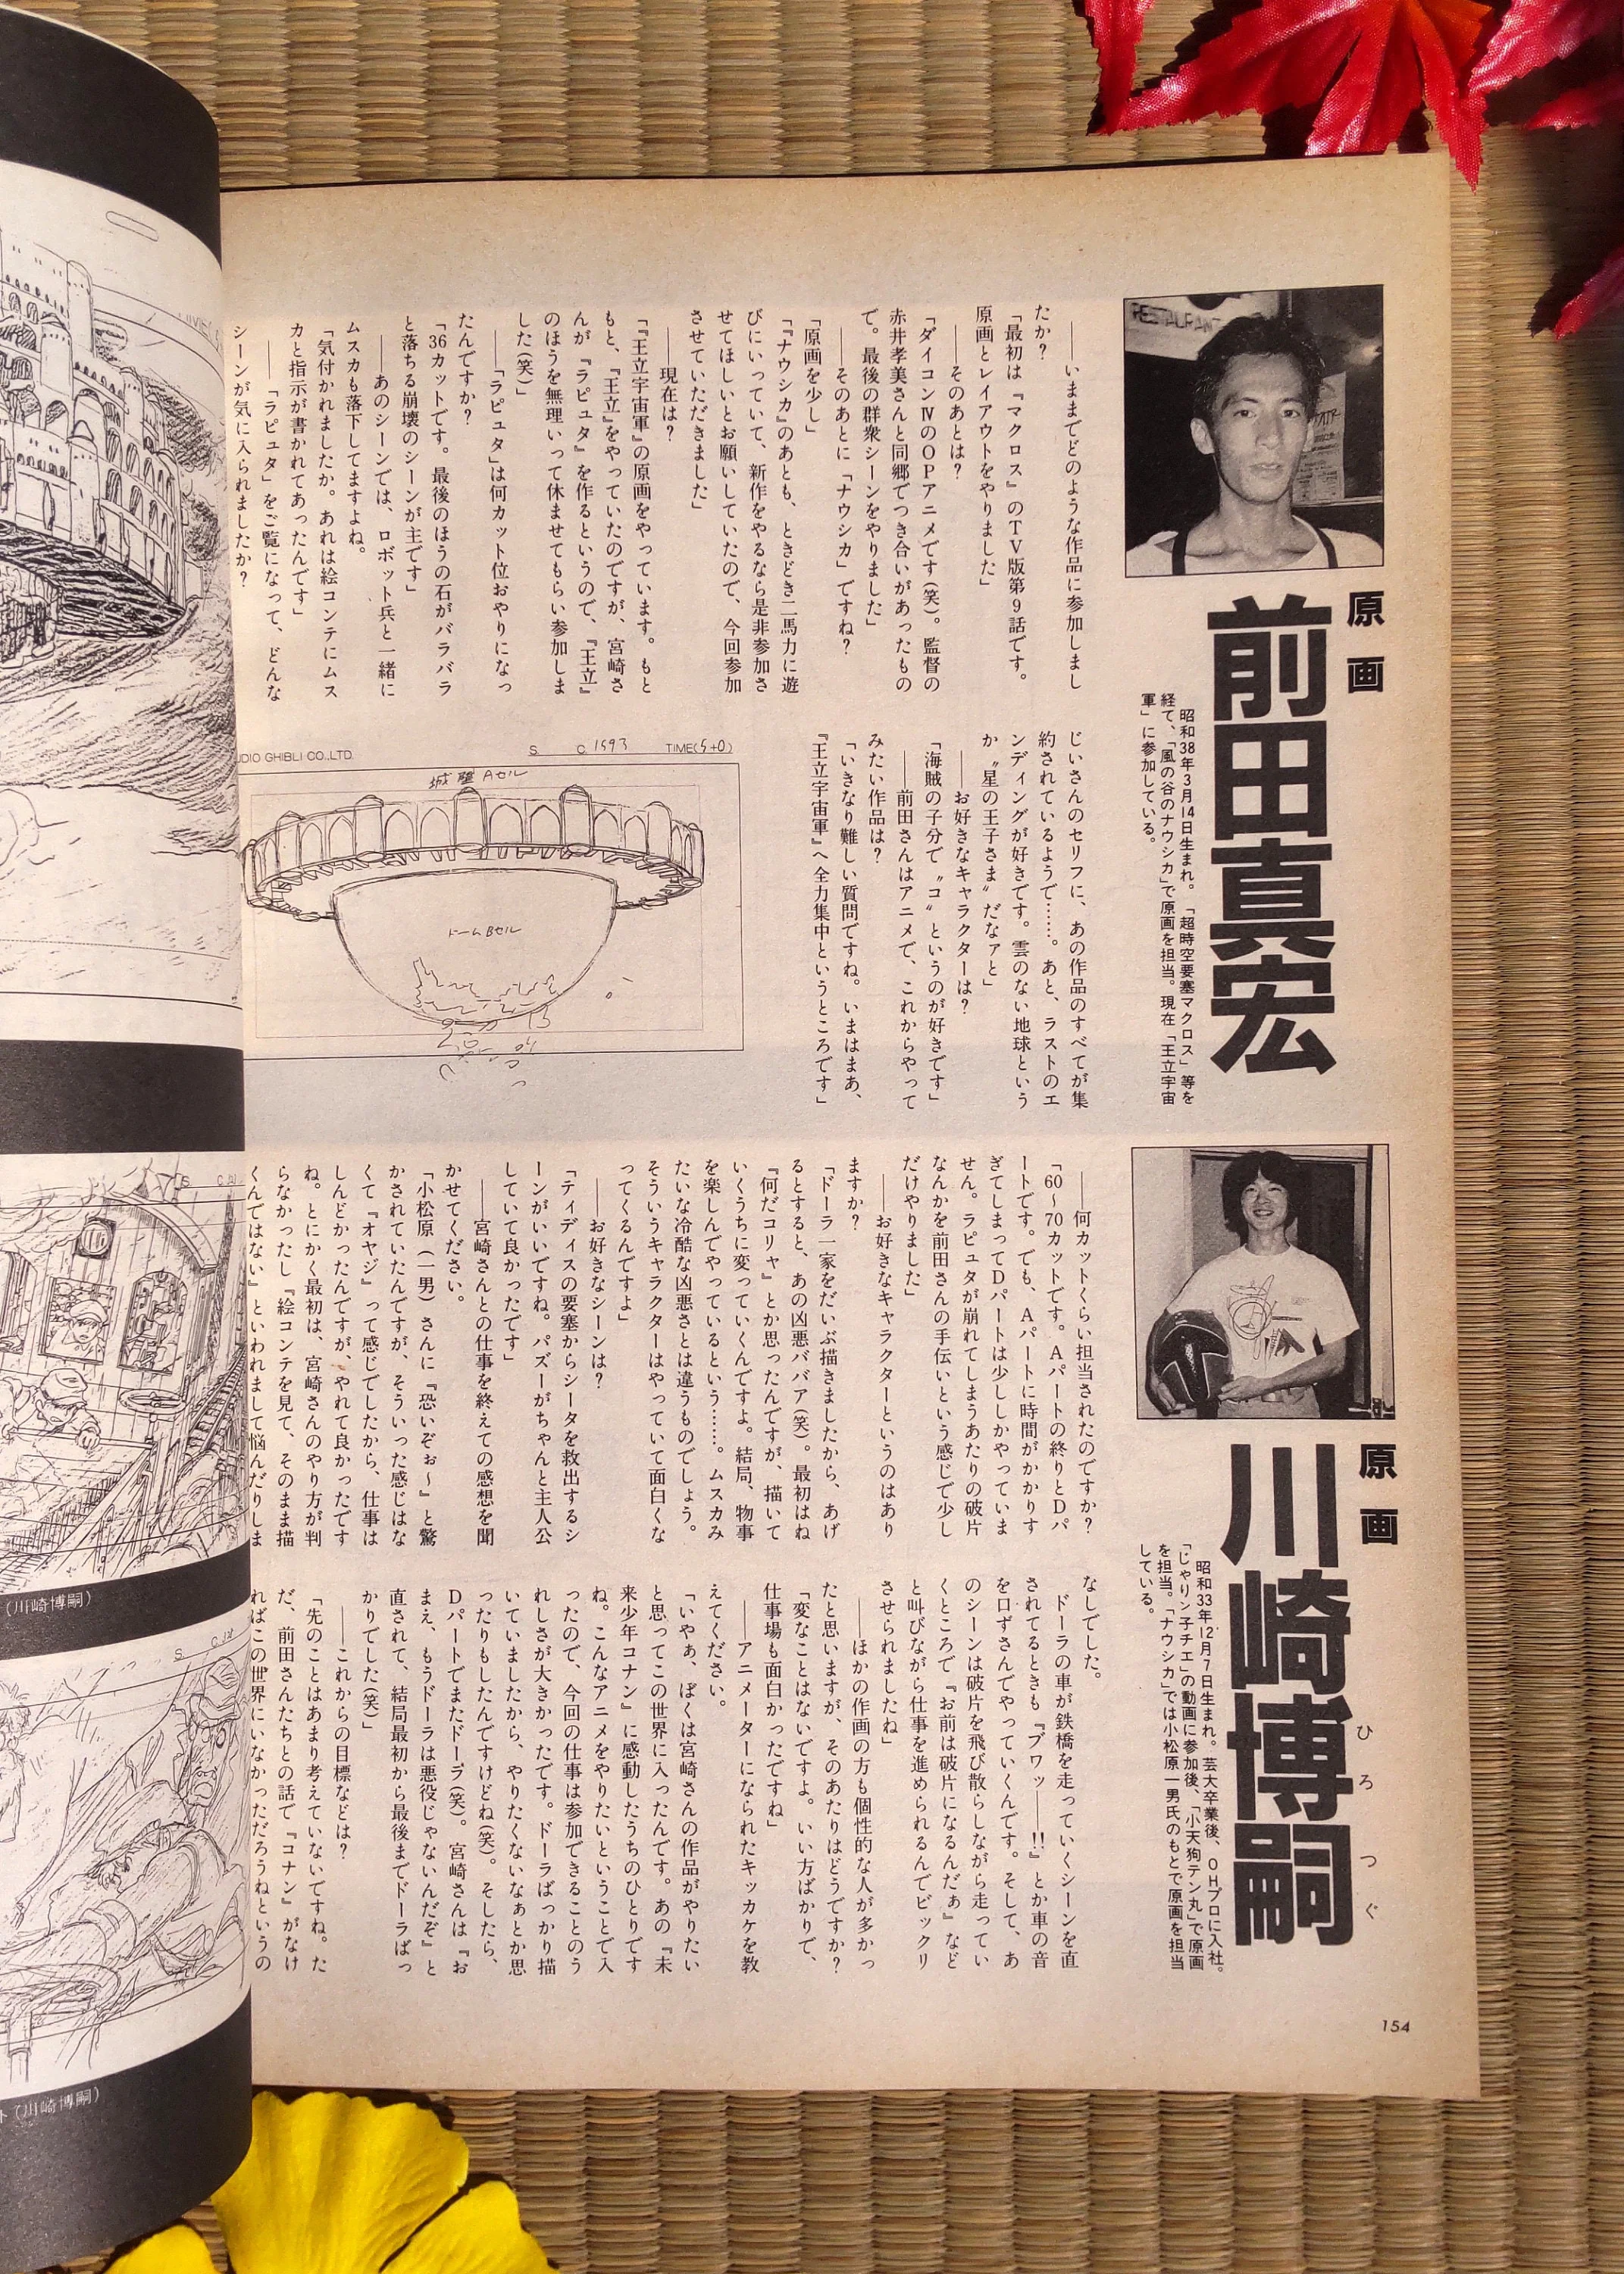 原画
前田真宏
昭和38年3月14日生まれ。「超時空要塞マクロス」等を
経て、「風の谷のナウシカ」で原画を担当。現在「王立宇宙
軍」に参加している。
――いままでどのような作品に参加しまし
たか？
「最初は『マクロス』のＴＶ版第９話です。
原画とレイアウトをやりました」
――そのあとは？
「ダイコンⅣのＯＰアニメです（笑）。監督の
赤井孝美さんと同郷でつき合いがあったもの
で。最後の群衆シーンをやりました」
――そのあとに「ナウシカ」ですね？
「原画を少し」
「『ナウシカ』のあとも、ときどき二馬力に遊
びにいっていて、新作をやるなら是非参加さ
せてほしいとお願いしていたので、今回参加
させていただきました」
――現在は？
「『王立宇宙軍』の原画をやっています。もと
もと、『王立』をやっていたのですが、宮崎さ
んが『ラピュタ』を作るというので、『王立』
のほうを無理いって休ませてもらい参加しま
した（笑）」
――「ラピュタ」は何カット位おやりになっ
たんですか？
「36カットです。最後のほうの石がバラバラ
と落ちる崩壊のシーンが主です」
――あのシーンでは、ロボット兵と一緒に
ムスカも落下してますよね。
「気付かれましたか。あれは絵コンテにムス
カと指示が書かれてあったんです」
――「ラピュタ」をご覧になって、どんな
シーンが気に入られましたか？
じいさんのセリフに、あの作品のすべてが集
約されているようで……。あと、ラストのエ
ンディングが好きです。雲のない地球という
か〝星の王子さま〟だなァと」
――お好きなキャラクターは？
「海賊の子分で〝コ〟というのが好きです」
――前田さんはアニメで、これからやって
みたい作品は？
「いきなり難しい質問ですね。いまはまあ、
『王立宇宙軍』へ全力集中というところです」
UDIO GHIBLI CO.,LTD.
S
C 1593
TIME(5+0)
城壁 Aセル
ドームBセル
原画
川崎博嗣
ひろつぐ
昭和33年12月7日生まれ。芸大卒業後、ＯＨプロに入社。
「じゃりン子チエ」の動画に参加後、「小天狗テン丸」で原画
を担当。「ナウシカ」では小松原一男氏のもとで原画を担当
している。
――何カットくらい担当されたのですか？
「60～70カットです。Ａパートの終りとＤパ
ートです。でも、Ａパートに時間がかかりす
ぎてしまってＤパートは少ししかやっていま
せん。ラピュタが崩れてしまうあたりの破片
なんかを前田さんの手伝いという感じで少し
だけやりました」
――お好きなキャラクターというのはあり
ますか？
「ドーラ一家をだいぶ描きましたから、あげ
るとすると、あの凶悪ババア（笑）。最初はね
『何だコリャ』とか思ったんですが、描いて
いくうちに変っていくんですよ。結局、物事
を楽しんでやっているという……。ムスカみ
たいな冷酷な凶悪さとは違うものでしょう。
そういうキャラクターはやっていて面白くな
ってくるんですよ」
――お好きなシーンは？
「ティディスの要塞からシータを救出するシ
ーンがいいですね。パズーがちゃんと主人公
していて良かったです」
――宮崎さんとの仕事を終えての感想を聞
かせてください。
「小松原（一男）さんに『恐いぞぉ～』と驚
かされていたんですが、そういった感じはな
くて『オヤジ』って感じでしたから、仕事は
しんどかったんですが、やれて良かったです
ね。とにかく最初は、宮崎さんのやり方が判
らなかったし『絵コンテを見て、そのまま描
くんではない』といわれまして悩んだりしま
なしでした。
ドーラの車が鉄橋を走っていくシーンを直
されてるときも『ブワッ――!!』とか車の音
を口ずさんでやっていくんです。そして、あ
のシーンは破片を飛び散らしながら走ってい
くところで『お前は破片になるんだぁ』など
と叫びながら仕事を進められるんでビックリ
させられましたね」
――ほかの作画の方も個性的な人が多かっ
たと思いますが、そのあたりはどうですか？
「変なことはないですよ。いい方ばかりで、
仕事場も面白かったですね」
――アニメーターになられたキッカケを教
えてください。
「いやぁ、ぼくは宮崎さんの作品がやりたい
と思ってこの世界に入ったんです。あの『未
来少年コナン』に感動したうちのひとりです
ね。こんなアニメをやりたいということで入
ったので、今回の仕事は参加できることのう
れしさが大きかったです。ドーラばっかり描
いていましたから、やりたくないなぁとか思
ったりもしたんですけどね（笑）。そしたら、
Ｄパートでまたドーラ（笑）。宮崎さんは『お
まえ、もうドーラは悪役じゃないんだぞ』と
直されて、結局最初から最後までドーラばっ
かりでした（笑）」
――これからの目標などは？
「先のことはあまり考えていないですね。た
だ、前田さんたちとの話で『コナン』がなけ
ればこの世界にいなかっただろうねというの
154
（川崎博嗣）
ト（川崎博嗣）